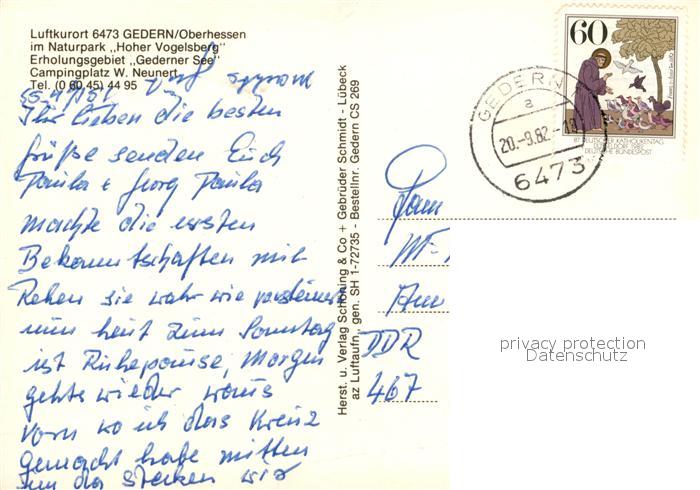 Luftkurort 6473 GEDERN/Oberhessen
im Naturpark „Hoher Vogelsberg"
Erholungsgebiet „Gederner See"
Campingplatz W. Neunert
Tel. (0 60 45) 44 95
Ihr lieben die besten
Grüße senden Euch
Paula + Georg Paula
machte die ersten
Bekanntschaften mit
Rehen sie wahr wie
nun heut zum Sonntag
ist Ruhepause, Morgen
gehts wieder
vorn wo ich das Kreuz
gemacht habe mitten
da stecken wir
Herst. u. Verlag Schöning & Co + Gebrüder Schmidt - Lübeck
az Luftaufn., gen. SH 1-72735 - Bestellnr. Gedern CS 269
60
87. DEUTSCHER KATHOLIKENTAG
DÜSSELDORF 1982
DEUTSCHE BUNDESPOST
GEDERN
a
20.-9.82
6473
Fam
DDR
467
privacy protection
Datenschutz